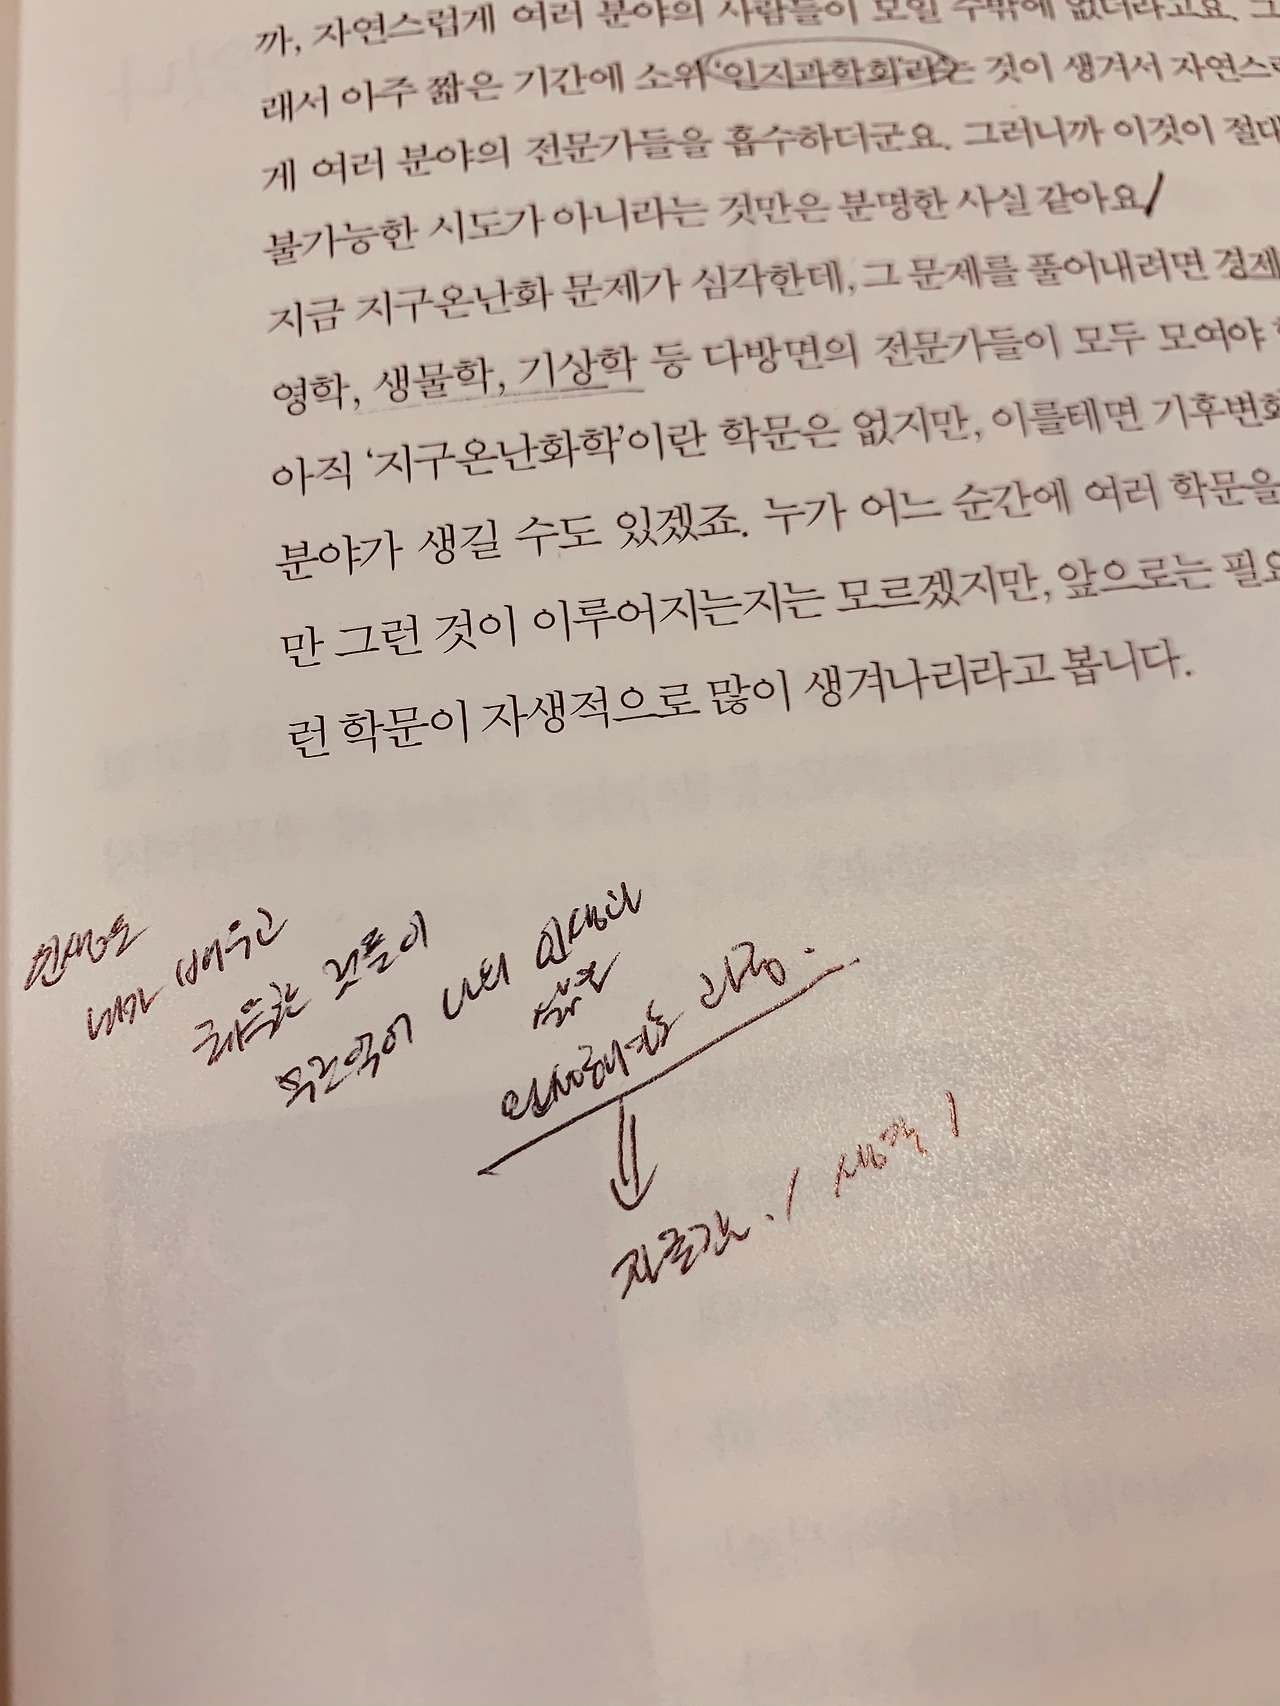 까, 자연스럽게 여러 분야의 사람들이 모일 수밖에 없더라고요. 그
래서 아주 짧은 기간에 소위 ‘인지과학회’라는 것이 생겨서 자연스럽
게 여러 분야의 전문가들을 흡수하더군요. 그러니까 이것이 절대
불가능한 시도가 아니라는 것만은 분명한 사실 같아요/
지금 지구온난화 문제가 심각한데, 그 문제를 풀어내려면 경제
영학, 생물학, 기상학 등 다방면의 전문가들이 모두 모여야
아직 ‘지구온난화학’이란 학문은 없지만, 이를테면 기후변화
분야가 생길 수도 있겠죠. 누가 어느 순간에 여러 학문을
만 그런 것이 이루어지는지는 모르겠지만, 앞으로는 필요
런 학문이 자생적으로 많이 생겨나리라고 봅니다.
인생도
내가 배우고
것들이
나의 인생과
삶을
완성해가는 과정.
지금은. / 생각